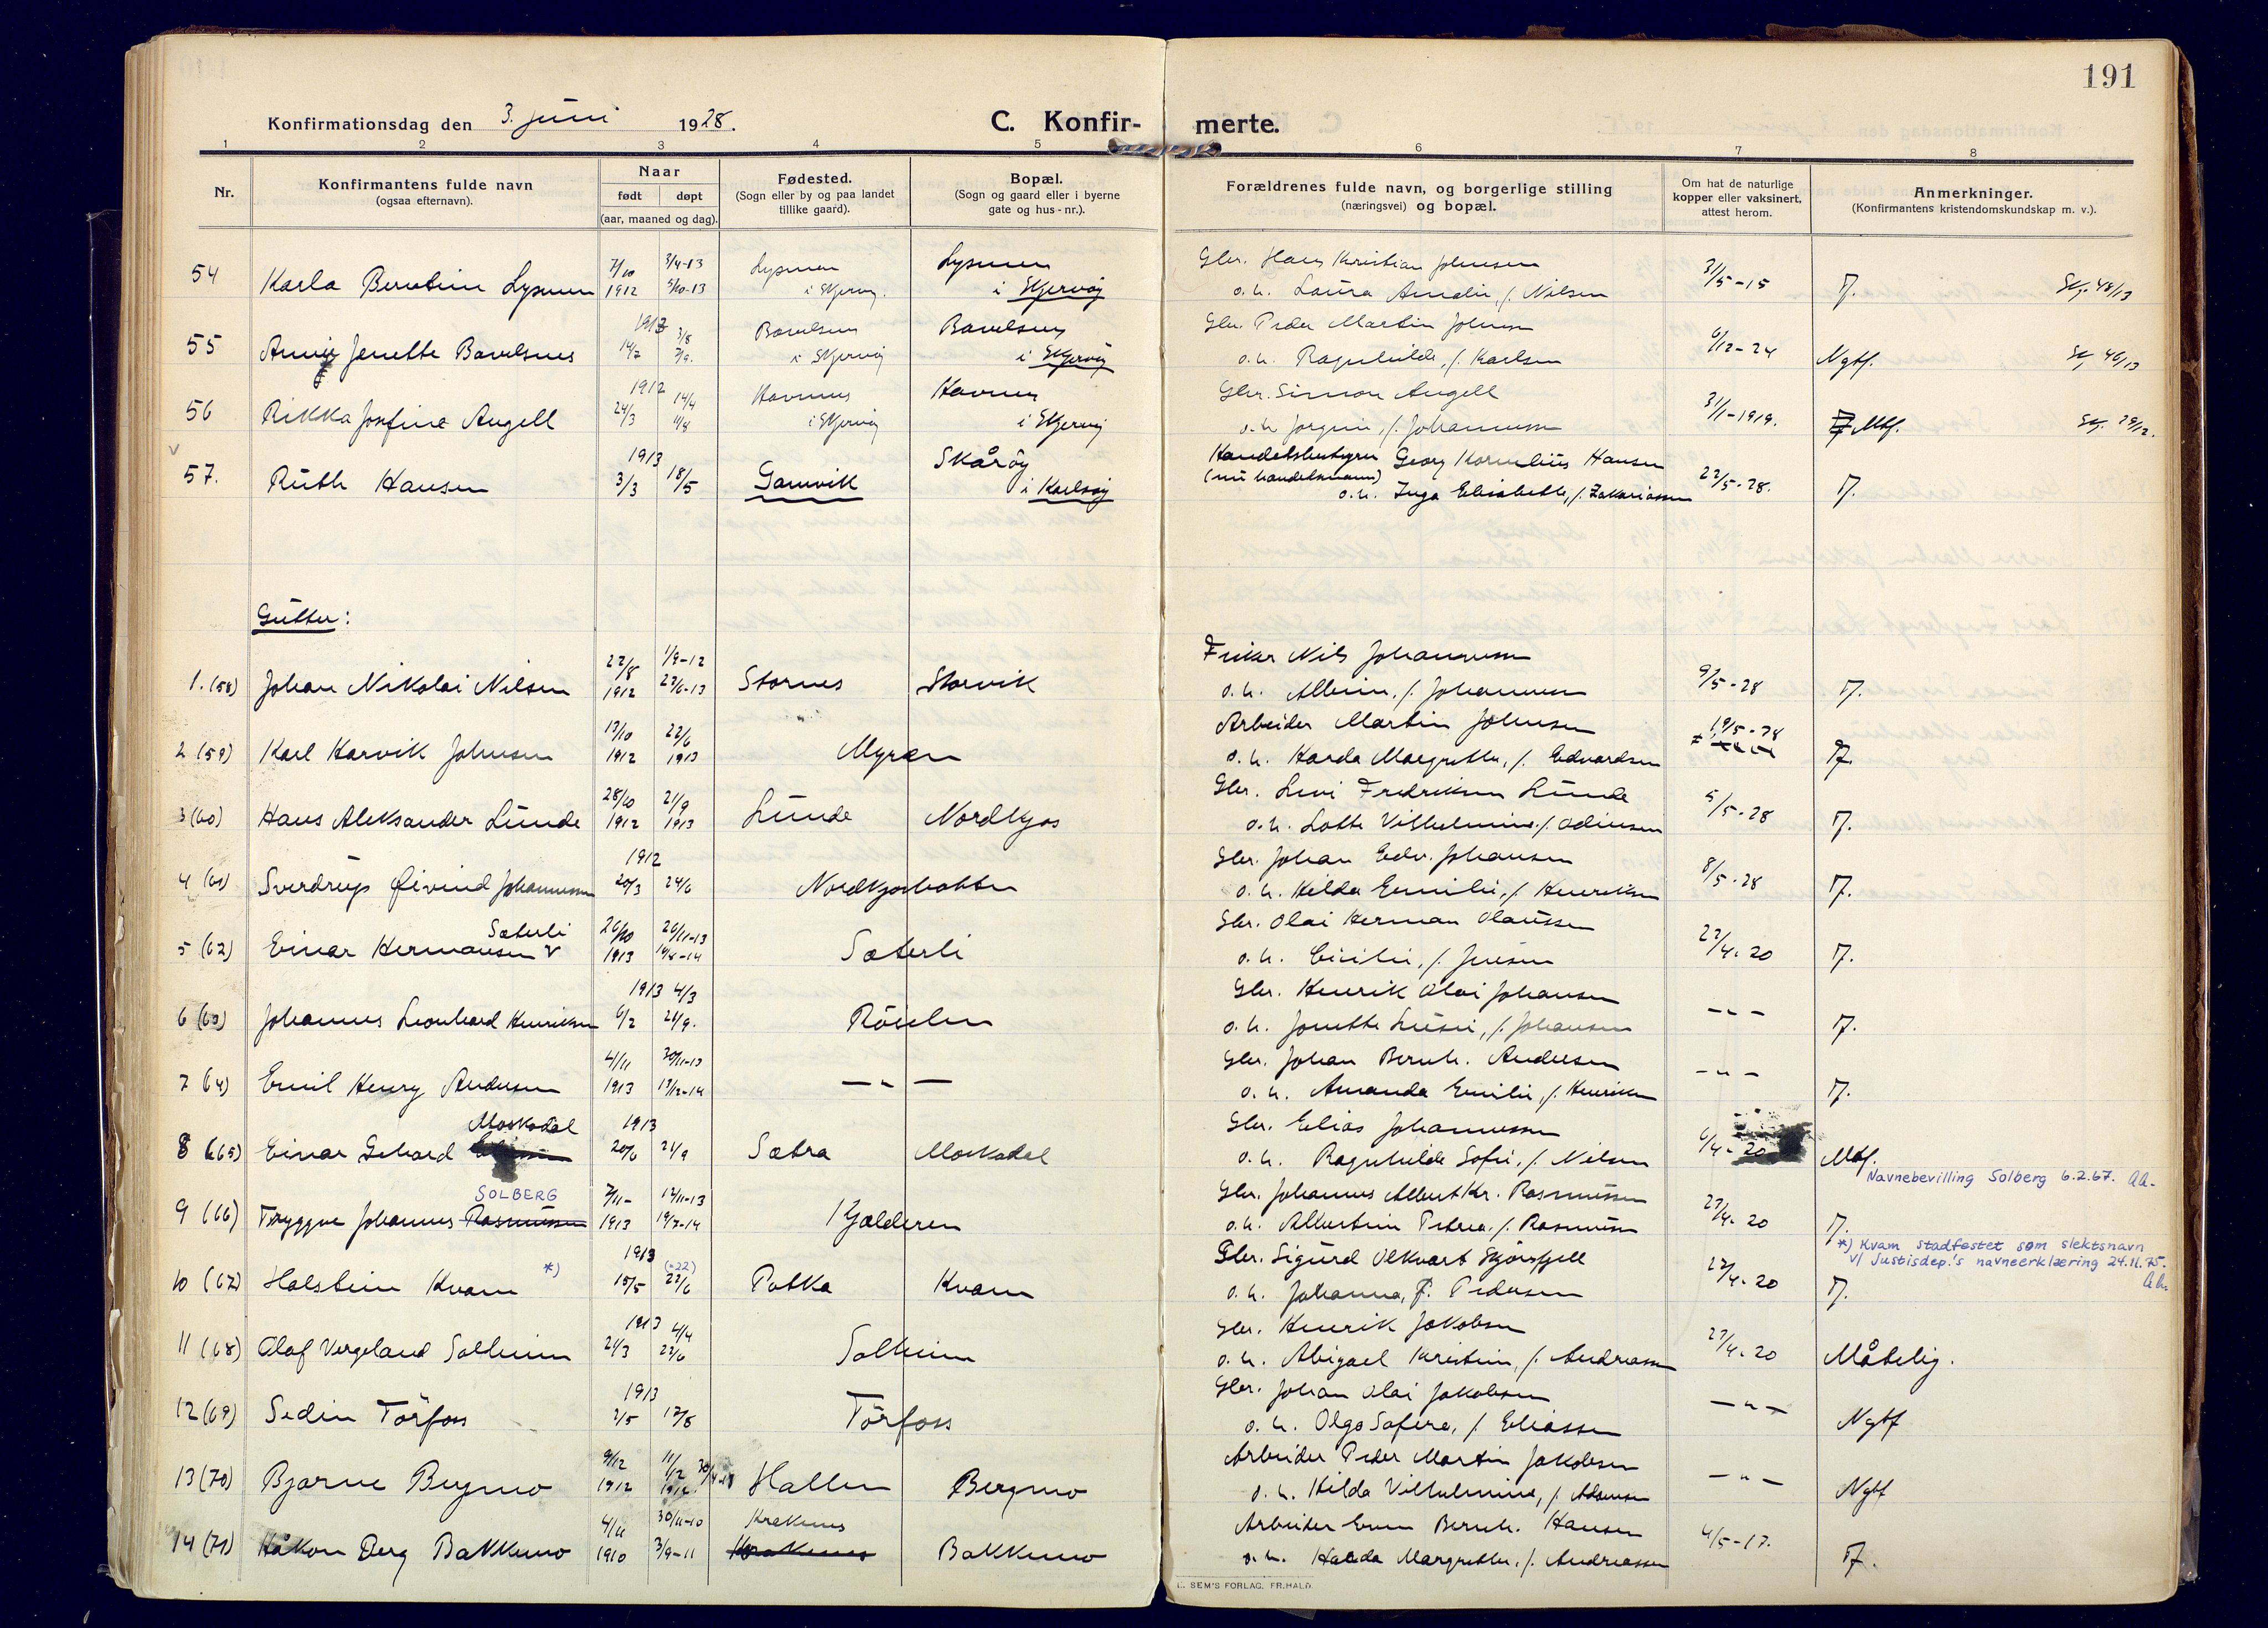 191
Konfirmationsdag den 3. juni 1928.
C. Konfir- merte.
1 2 3 4 5 6 7 8
Nr.
Konfirmantens fulde navn
(ogsaa efternavn).
Naar
født døpt
(aar, maaned og dag).
Fødested.
(Sogn eller by og paa landet
tillike gaard).
Bopæl.
(Sogn og gaard eller i byerne
gate og hus-nr.).
Forældrenes fulde navn, og borgerlige stilling
(næringsvei) og bopæl.
Om hat de naturlige
kopper eller vaksinert,
attest herom.
Anmerkninger.
(Konfirmantens kristendomskundskap m. v.).
7/10 3/4-13 Gbr. Hans Kristian Johnsen
54 Karla Berntine 1912 5/10-13 i Skjervøy o. h. Laura Amalie, f. Nilsen 31/5-15 T. Skj. 48/13
1913 3/8 Gbr. Peder Martin Johnsen
55 Jenette 14/7 7/9 i Skjervøy i Skjervøy o. h. Ragnhilde, f. Karlsen 6/12-24 Ngtf. Skj. 46/13
1912 14/4 Havnnes Havnnes Gbr. Simon Angell
56 Rikka Josefine Angell 24/3 i Skjervøy i Skjervøy o. h. Jørgine, f. Johannessen 31/1-1919. Mtf. Skj. 29/12.
v
1913 Skårøy Handelsbestyrer Georg Kornelius Hansen
57. Ruth Hansen 3/3 18/5 Gamvik i Karlsøy (nu handelsmann) o. h. Inga Elisabeth, f. Zakariassen 22/5-28. T.
Gutter:
22/8 1/9-12 Fisker Nils Johannessen
1. (58) Johan Nikolai Nilsen 1912 22/6-13 Stornes Storvik o. h. Albine, f. Johannessen 9/5-28 T.
13/10 22/6 Arbeider Martin Johnsen 19/5-28
2 (59) Karl Harvik Johnsen 1912 1913 Myren o. h. Harda Margrethe, f. Edvardsen T.
28/10 21/9 Gbr. Levi Fredriksen Lunde
3 (60) Hans Aleksander Lunde 1912 1913 Lunde Nordkjos o. h. Lotte Vilhelmine f. Odinsen 5/5-28 T.
1912 Gbr. Johan Edv. Johansen
4 (61) Sverdrup Øivind Johannessen 20/3 24/6 Nordkjosbotten o. h. Hilda Emilie, f. Henriksen 8/5-28 T.
Sæterli 26/10 26/11-13 Gbr. Olai Herman Olaussen
5 (62) Einar Hermansen v 1913 -14 Sæterli o. h. f. Jensen 22/4-20 T.
1913 4/3 Gbr. Henrik Olai Johansen
6 (63) Johannes Leonhard Henriksen 6/2 21/9. o. h. Jonette f. Johansen — " — T.
4/11 30/11-13 Gbr. Johan Bernh. Andersen
7 (64) Emil Henry Andersen 1913 13/12-14 — " — o. h. Amanda Emilie, f. Henriksen — " — T.
Moskodal 1913 Gbr. Elias Johannessen
8 (65) Einar Gehard 20/6 21/9 Sætra Moskodal o. h. Ragnhilde Sofie, f. Nilsen 6/4-20 Mtf.
Navnebevilling Solberg 6.2.67.
SOLBERG 7/11- 12/11-13 Gbr. Johannes Albert Kr. Rasmussen
9 (66) Tryggve Johannes Rasmussen 1913 19/7-14 Kjelderen o. h. Albertine Petrea, f. Rasmussen 27/4-20 T.
*) Kvam stadfestet som slektsnavn
v/ Justisdep.'s navneerklæring 24.11.75.
1913 (-22) Gbr. Sigurd Olkvart Skjørsfjell
10 (67) Halstein Kvam *) 15/5 22/6 Potka Kvam o. h. Johanna, f. Pedersen 22/4-20 T.
1913 4/4 Gbr. Henrik Jakobsen
11 (68) Olaf Vergeland Solheim 21/3 22/6 Solheim o. h. Abigael Kristine, f. Andreassen 27/4-20 Måtelig.
1913 Gbr. Johan Olai Jakobsen
12 (69) Sedin Törfoss 2/5 17/8 Törfoss o. h. Olga Safira, f. Eliassen — " — Ngtf
9/12 Arbeider Peder Martin Jakobsen
13 (70) Bjarne Bergmo 1912 Hallen Bergmo o. h. Hilda Vilhelmine, f. Adamsen — " — Ngtf
4/11 30/11-10 Krakenes Arbeider Bernh. Hansen
14 (71) Håkon Berg Bakkemo 1910 3/9-11 Krakenes Bakkemo o. h. Harda Margrethe, f. Andreassen 4/5-17. T.
E. SEM'S FORLAG. FR.HALD.